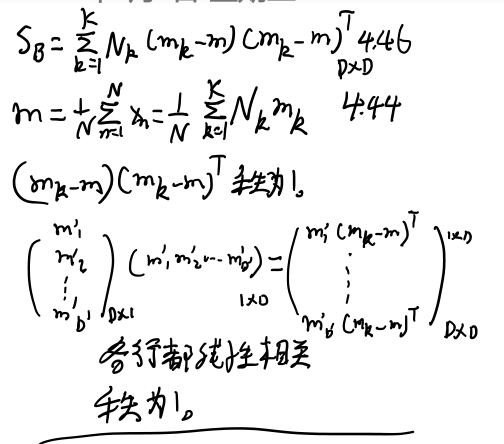 S_B = \sum_{k=1}^{K} N_k (m_k-m)(m_k-m)^T 4.46
D×D
m = \frac{1}{N} \sum_{n=1}^{N} x_n = \frac{1}{N} \sum_{k=1}^{K} N_k m_k 4.44
(m_k-m)(m_k-m)^T 秩为1。
\begin{pmatrix} m'_1 \\ m'_2 \\ \vdots \\ m'_D \end{pmatrix}_{D×1} (m'_1 m'_2 \cdots m'_D)_{1×D} = \begin{pmatrix} m'_1 (m_k-m)^T \\ \vdots \\ m'_D (m_k-m)^T \end{pmatrix}^{1×D}_{D×D}
各行都线性相关
秩为1。